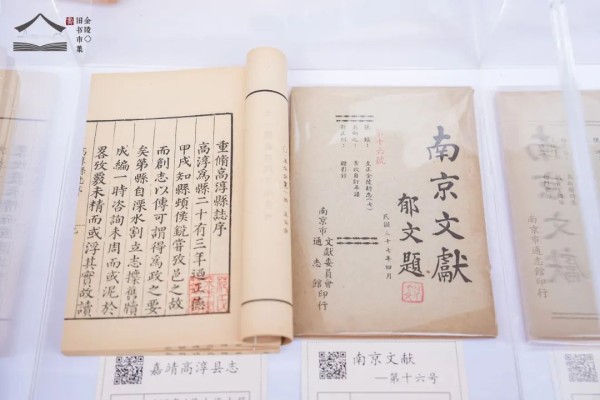 金陵
旧书市集
重脩高淳縣誌序
高淳為縣二十有三年
正德
甲戌知縣頓侯銳嘗攷邑之故
而創志以傳可謂得為政之要
矣第縣自溧水割立志摭舊牘
成編一時咨詢未周而或泥於
畧攷覈未精而或浮其實故讀
南京文獻
郁文題
民國三十七年四月
第十六號
南京市文獻委員會
通志館印行
南京文獻
嘉靖高淳县志
南京文献
—第十六号